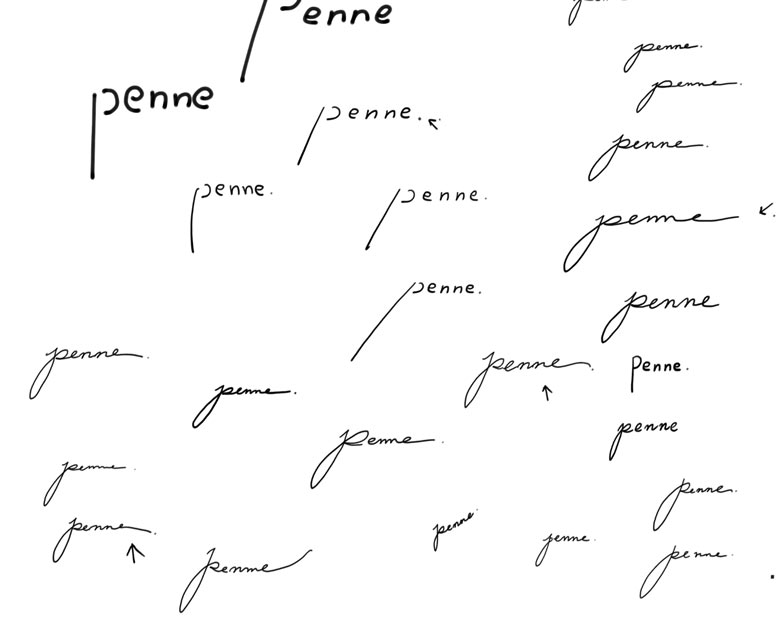 penne
penne.
penne.
penne
penne.
penne.
penne
penne.
penne.
penne
penne.
penne
penne.
penne.
penne.
penne.
penne.
penne
penne.
penne.
penne.
penne.
penne.
penne.
penne